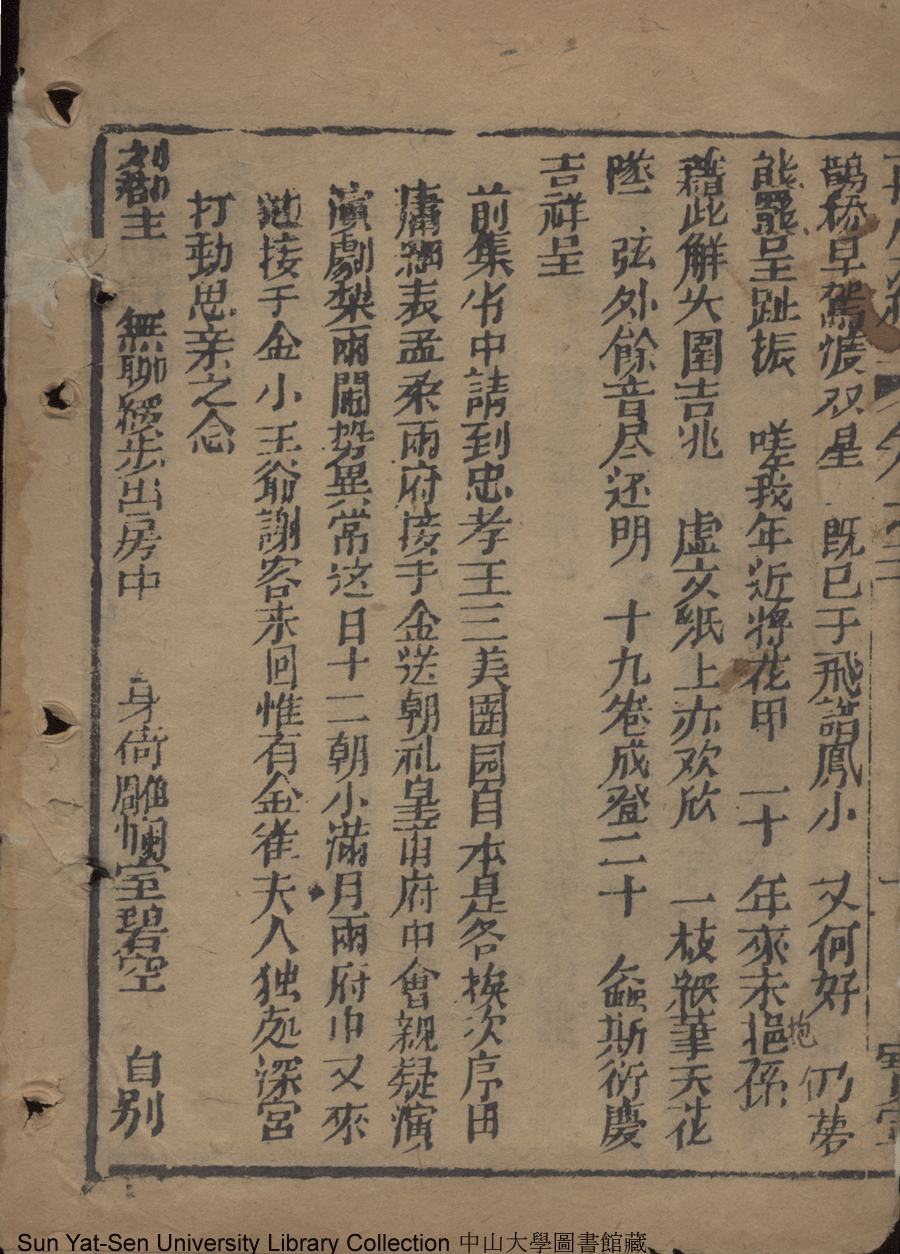 鵲桥早駕渡双星 既已于飛諧鳳小 又何好 仍夢
熊羆呈趾振 嗟我年近將花甲 一十年來未挹孫
抱
藉此解大圍吉兆 虛文紙上亦欢欣 一枝綵筆天花
墜 弦外餘音尽还明 十九卷成登二十 螽斯衍慶
吉祥呈
前集书中請到忠孝王三美團园自本是各挨次序由
庸細表孟柔兩府接于金送朝礼皇甫府中會親疑演
演劇梨雨鬧势異常这日十二朝小滿月兩府中又來
迎接于金小王爺謝客未回惟有金雀夫人独処深宮
打動思亲之念
刘郡主 無聊獨步出房中 身倚雕欄室碧空 自别
Sun Yat-Sen University Library Collection 中山大學圖書館藏